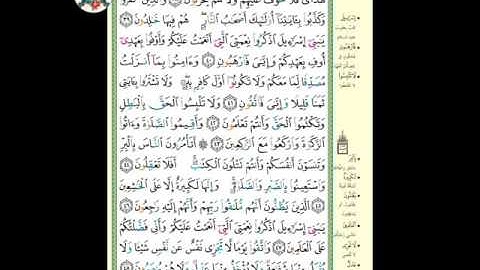 هُدَايَ فَلَا خَوْفٌ عَلَيْهِمْ وَلَا هُمْ يَحْزَنُونَ ٣٨ وَالَّذِينَ كَفَرُوا۟
وَكَذَّبُوا۟ بِـَٔايَـٰتِنَآ أُو۟لَـٰٓئِكَ أَصْحَـٰبُ النَّارِ ۖ هُمْ فِيهَا خَـٰلِدُونَ ٣٩
يَـٰبَنِىٓ إِسْرَٰٓءِيلَ اذْكُرُوا۟ نِعْمَتِىَ الَّتِىٓ أَنْعَمْتُ عَلَيْكُمْ وَأَوْفُوا۟ بِعَهْدِىٓ
أُوفِ بِعَهْدِكُمْ وَإِيَّـٰىَ فَارْهَبُونِ ٤٠ وَءَامِنُوا۟ بِمَآ أَنزَلْتُ
مُصَدِّقًا لِّمَا مَعَكُمْ وَلَا تَكُونُوٓا۟ أَوَّلَ كَافِرٍۭ بِهِۦ ۖ وَلَا تَشْتَرُوا۟ بِـَٔايَـٰتِى
ثَمَنًا قَلِيلًا وَإِيَّـٰىَ فَاتَّقُونِ ٤١ وَلَا تَلْبِسُوا۟ الْحَقَّ بِالْبَـٰطِلِ
وَتَكْتُمُوا۟ الْحَقَّ وَأَنتُمْ تَعْلَمُونَ ٤٢ وَأَقِيمُوا۟ الصَّلَوٰةَ وَءَاتُوا۟
الزَّكَوٰةَ وَارْكَعُوا۟ مَعَ الرَّٰكِعِينَ ٤٣ ۞ أَتَأْمُرُونَ النَّاسَ بِالْبِرِّ
وَتَنسَوْنَ أَنفُسَكُمْ وَأَنتُمْ تَتْلُونَ الْكِتَـٰبَ ۚ أَفَلَا تَعْقِلُونَ ٤٤
وَاسْتَعِينُوا۟ بِالصَّبْرِ وَالصَّلَوٰةِ ۚ وَإِنَّهَا لَكَبِيرَةٌ إِلَّا عَلَى الْخَـٰشِعِينَ
٤٥ الَّذِينَ يَظُنُّونَ أَنَّهُم مُّلَـٰقُوا۟ رَبِّهِمْ وَأَنَّهُمْ إِلَيْهِ رَٰجِعُونَ ٤٦
يَـٰبَنِىٓ إِسْرَٰٓءِيلَ اذْكُرُوا۟ نِعْمَتِىَ الَّتِىٓ أَنْعَمْتُ عَلَيْكُمْ وَأَنِّى فَضَّلْتُكُمْ
عَلَى الْعَـٰلَمِينَ ٤٧ وَاتَّقُوا۟ يَوْمًا لَّا تَجْزِى نَفْسٌ عَن نَّفْسٍ شَيْـًٔا وَلَا
يُقْبَلُ مِنْهَا شَفَـٰعَةٌ وَلَا يُؤْخَذُ مِنْهَا عَدْلٌ وَلَا هُمْ يُنصَرُونَ ٤٨